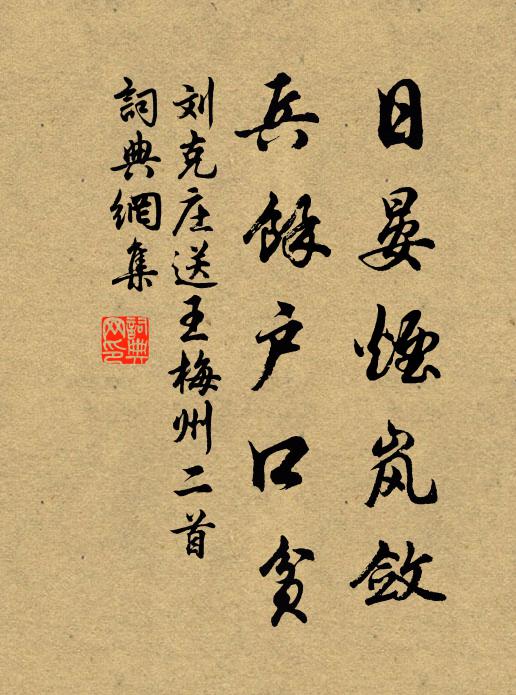 日晏煙岚斂
兵餘户口貧
刘克庄送王梅州二首
詞典網集
詞典网印